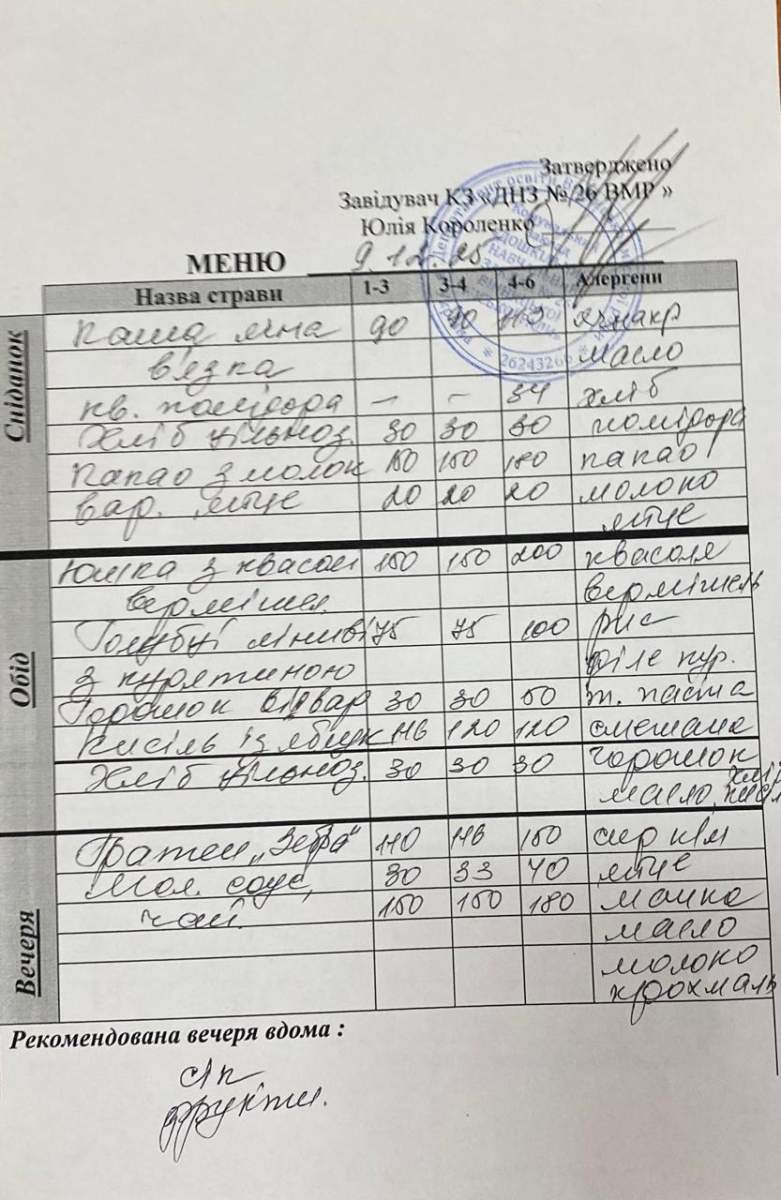 Затверджено
Завідувач КЗ «ДНЗ № 26 ВМР »
Юлія Короленко
МЕНЮ 9.12.25
Назва страви 1-3 3-4 4-6 Алергени
Сніданок
Каша ячна 90 90 ячна кр
в'язка масло
кв. помідора – – 34 хліб
Хліб цільноз. 30 30 30 помідора
Какао з молок 150 150 180 какао
вар. яйце 20 20 20 молоко
яйце
Обід
Юшка з квасол 150 150 200 квасоля
вермішел. вермішель
Голубці ліниві 75 75 100 рис
з курятиною філе кур.
Горошок відвар 30 30 50 т. паста
Кисіль із яблук 116 120 120 сметана
Хліб цільноз. 30 30 30 горошок
масло, хліб
Вечеря
Гратен „Зебра" 110 116 150 сир к/м
Мол. соус, 30 33 40 яйце
чай. 150 150 180 манка
масло
молоко
крохмаль
Рекомендована вечеря вдома :
фрукти.
26243266